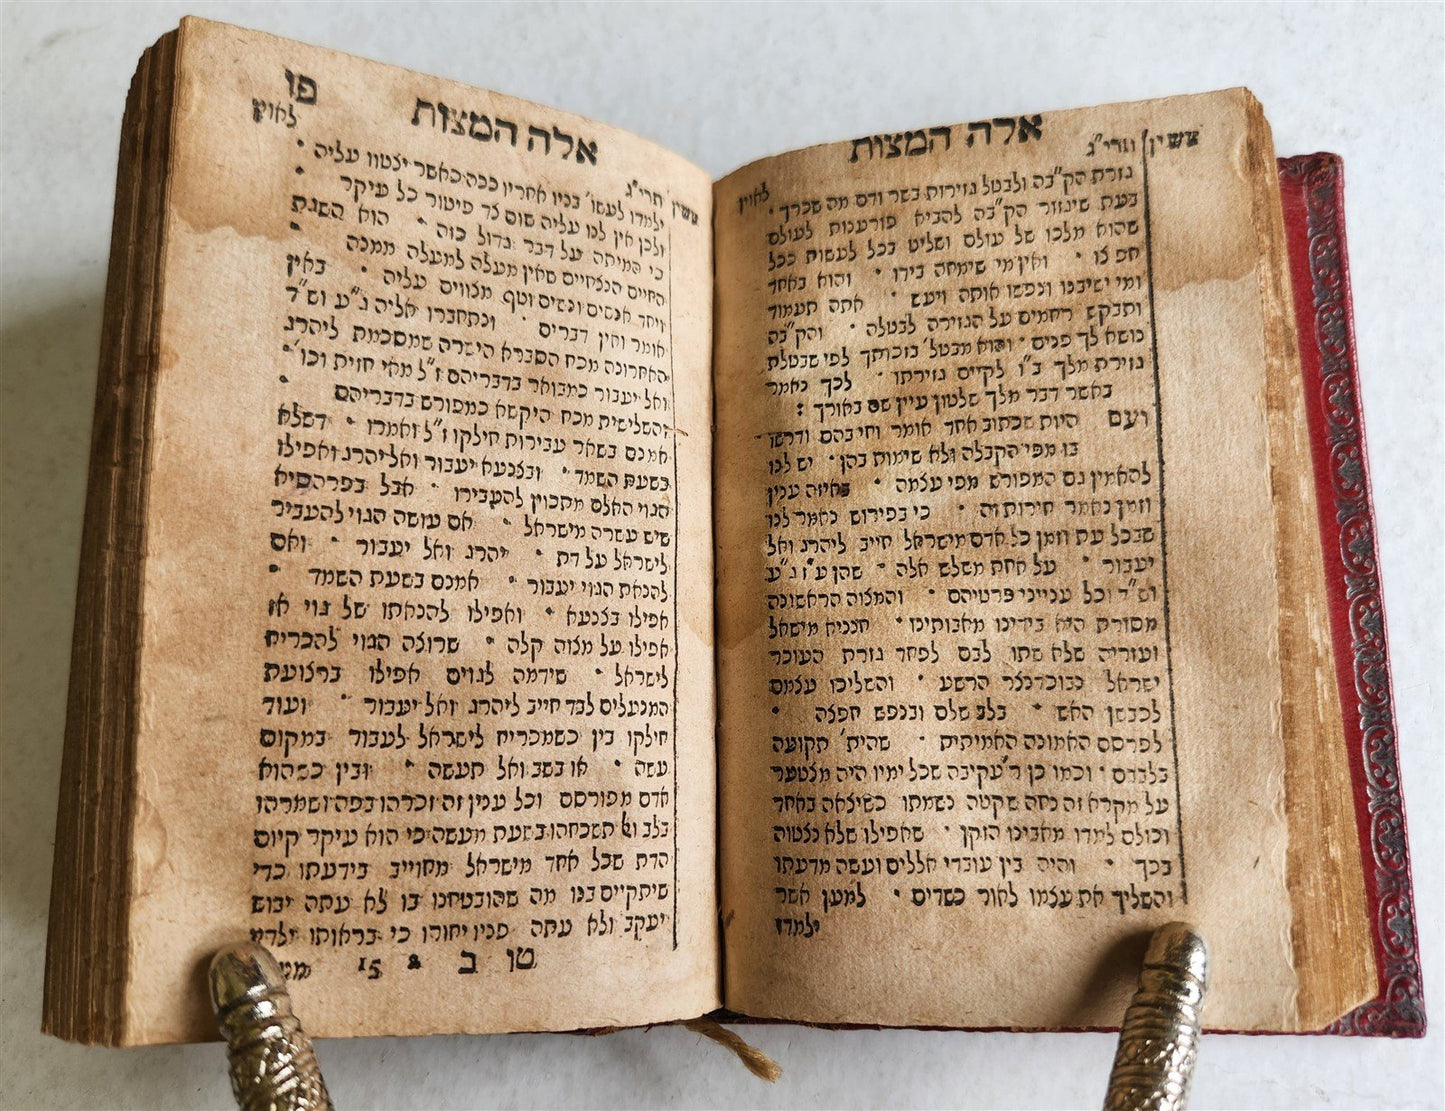 אלה המצות
עשין ותרי"ג לאוין
גזרת הק"בה ולבטל גזירות בשר ודם מה שכרך •
בעת שיגזור הק"בה להביא פורענות לעולם
שהוא מלכו של עולם ושליט בכל לעשות ככל
חפצו • ואין מי שימחה בידו • והוא באחד
ומי ישיבנו ונפשו אותה ויעש • אתה תעמוד
ותבקש רחמים על הגזירה לבטלה • והק"בה
נושא לך פנים • והוא מבטל' בזכותך לפי שבטלת
גזירת מלך ב"ו לקיים גזירתו • לכך נאמר
באשר דבר מלך שלטון עיין שם באורך :
ועם היות שכתוב אחד אומר וחי בהם ודרשו
בו מפי הקבלה ולא שימות בהן • יש לנו
להאמין גם המפורש מפי עצמה • באיזה ענין
וזמן נאמר חירות זה • כי בפירוש נאמר לנו
שבכל עת וזמן כל אדם מישראל חייב ליהרג ואל
יעבור • על אחת משלש אלה • שהן ע"ז ג"ע
וש"ד וכל ענייני פרטיהם • והמצוה הראשונה
מסורת היא בידינו מאבותינו • חנניא מישאל
ועזריה שלא שתו לבם לפחד גזרת העוכר
ישראל נבוכדנצר הרשע • והשליכו עצמם
לכבשן האש • בלב שלם ובנפש חפצה •
לפרסם האמונה האמיתית • שהית' תקועה
בלבבם • וכמו כן ר' עקיבה שכל ימיו היה מצטער
על מקרא זה נחה שקטה נשמתו כשיצאה באחד
וכולם למדו מאבינו הזקן • שאפילו שלא נצטוה
בכך • והיה בין עובדי אלילים ועשה מדעתו
והשליך את עצמו לאור כשדים • למען אשר
ילמדו
אלה המצות פו
עשין תרי"ג לאוין
ילמדו לעשו' בניו אחריו ככה כאשר יצטוו עליה •
ולכן אין לנו עליה שום צד פיטור כל עיקר •
כי המיתה על דבר גדול כזה • הוא השגת
החיים הנצחיים שאין מעלה למעלה ממנה •
ויחד אנשים ונשים וטף מצווים עליה • באין
אומר ואין דברים • ונתחברו אליה ג"ע וש"ד
האחרונה מכח הסברא הישרה שמסכמת ליהרג
ואל יעבור כמבואר בדבריהם ז"ל מאי חזית וכו' •
והשלישית מכח היקשא כמפורש בדבריהם •
אמנם בשאר עבירות חילקו ז"ל ואמרו • דשלא
בשעת השמד • ובצנעא יעבור ואל יהרג ואפילו
הגוי האלם מתכוין להעבירו • אבל בפרהסיא
שיש עשרה מישראל • אם עושה הגוי להעביר
לישראל על דת • יהרג ואל יעבור • ואם
להנאת הגוי יעבור • אמנם בשעת השמד •
אפילו בצנעא • ואפילו להנאתו של גוי או
אפילו על מצוה קלה • שרוצה הגוי להכריח
לישראל • שידמה לגוים אפילו ברצועת
המנעלים לבד חייב ליהרג ואל יעבור • ועוד
חילקו בין כשמכריח לישראל לעבוד במקום
עשה • או בשב ואל תעשה • ובין כשהוא
אדם מפורסם וכל ענין זה זכרהו בפה ושמרהו
בלב ול תשכחהו בשעת מעשה כי הוא עיקר קיום
הדת שכל אחד מישראל מחוייב בידעתו כדי
שיתקיים בנו מה שהובטחנו בו לא עתה יבוש
יעקב ולא עתה פניו יחורו כי בראותו ילדיו
טו ב 2 15